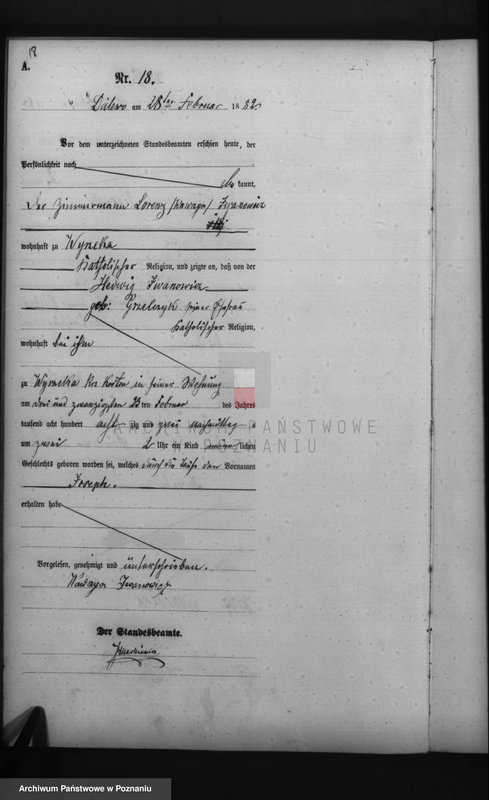 18
A.
Nr. 18.
am 28ten Februar 1882
Vor dem unterzeichneten Standesbeamten erschien heute, der
Persönlichkeit nach
kannt,
Der Zimmermann Lorenz /Wawrzyn/ Iwanowicz
wohnhaft zu
Katholischer Religion, und zeigte an, daß von der
Hedwig Iwanowicz
geb: Grzelczyk seiner Ehefrau
Katholischer Religion,
wohnhaft bei ihm
zu in seiner Wohnung
am drei und zwanzigsten ten Februar des Jahres
tausend acht hundert acht zig und zwei nachmittag s
um zwei 2 Uhr ein Kind lichen
Geschlechts geboren worden sei, welches durch die Taufe den Vornamen
Joseph.
erhalten habe
Vorgelesen, genehmigt und unterschrieben.
Iwanowicz
Der Standesbeamte.
ARCHIWUM PAŃSTWOWE
W POZNANIU
Archiwum Państwowe w Poznaniu